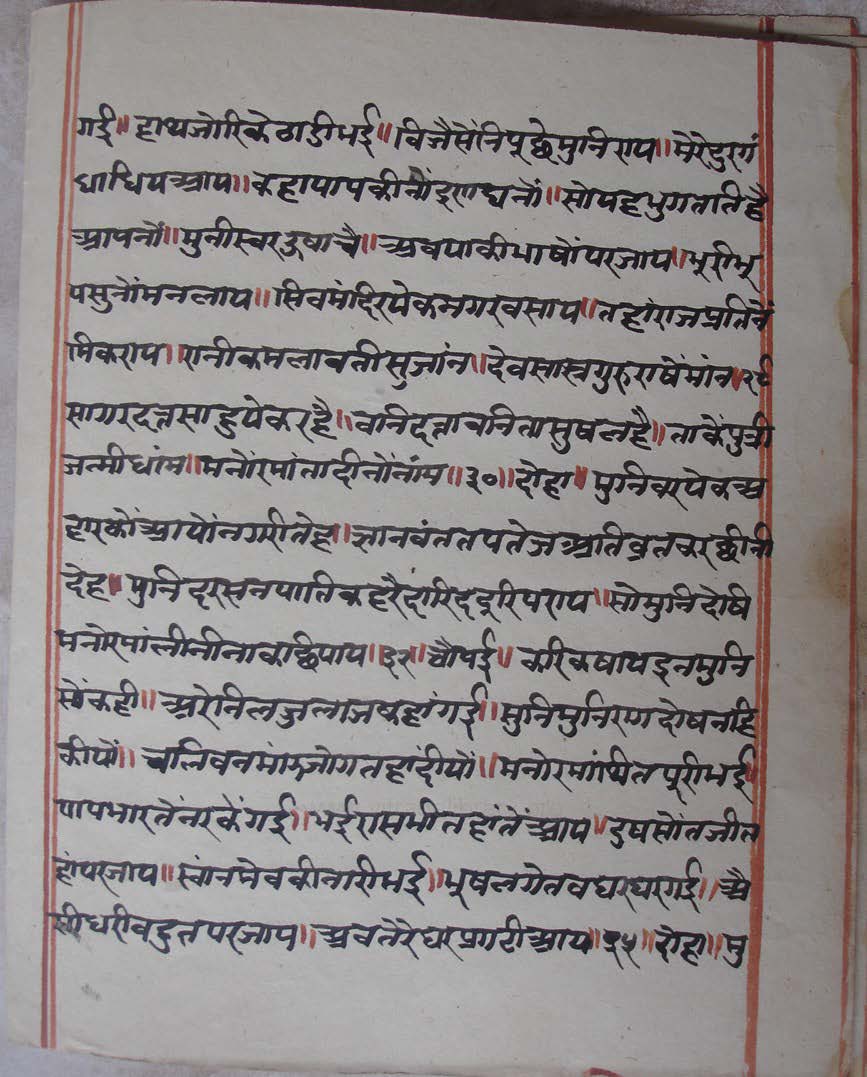 गई॥ हाथजोरिकेठाडीभई॥ विजैसेंनिपूछेमुनिराय॥ मेरेदुरगं
धाधियआय॥ कहापापकीनौंइणघनौं॥ सोयहभुगततिहै
आपनौं॥ मुनीस्वरउवाच॥ अवयाकीभाषौंपरजाय॥ भूरीभू
पसुनौंमनलाय॥ सिवमंदिरयेकनगरवसाय॥ तहांराजप्रतिवें
मिकराय॥ रानीकमलावतीसुजांन॥ देवसास्त्रगुरुराषेंमांन॥२९
सागरदत्तसाहुयेकरहै॥ वनिदत्तावनितासुषलहै॥ ताकेंपुत्री
जन्मीधांम॥ मनोंरमांतादीनोंनांम॥३०॥ दोहा॥ मुनिवरयेकअ
हारकोंआयोंनगरीतेह॥ ज्ञानवंततपतेजअतिव्रतकरछीनी
देह॥ मुनिदरसनपातिकहरैदारिददूरिपराय॥ सोमुनिदोषी
मनोरमांलीनीनाकछिपाय॥३२॥ चौपई॥ करिकषायइनमुनि
सोंकही॥ अरेनिलजुलाजकहांगई॥ मुनिमुनिरायदोषनहि
कीयों॥ चलिवनमांझजोगतहांदीयों॥ मनोरमांथीतपूरीभई॥
पापभारतेंनरकेंगई॥ भईरासभीतहांतेंआय॥ दुषसोंतजीत
हांपरजाय॥ स्वांनमेवकीनारीभई॥ भूषलगेतवघरघरगई॥ अै
सीधरीवहुतपरजाय॥ अवतेरेघरप्रगटीआय॥३५॥ दोहा॥ मु